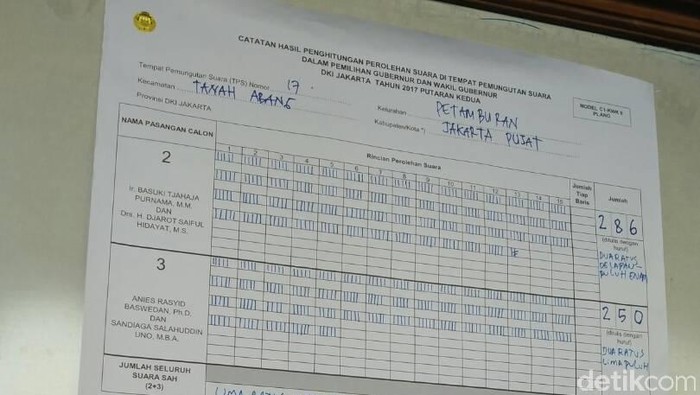 CATATAN HASIL PENGHITUNGAN PEROLEHAN SUARA DI TEMPAT PEMUNGUTAN SUARA
DALAM PEMILIHAN GUBERNUR DAN WAKIL GUBERNUR
DKI JAKARTA TAHUN 2017 PUTARAN KEDUA
MODEL C1-KWK
PLANO
Tempat Pemungutan Suara (TPS) Nomor : 17
Kecamatan : TANAH ABANG
Provinsi DKI JAKARTA
Kelurahan : PETAMBURAN
Kabupaten/Kota *) : JAKARTA PUSAT
NAMA PASANGAN CALON
Rincian Perolehan Suara
Jumlah Tiap Baris
Jumlah
1 2 3 4 5 6 7 8 9 10 11 12 13 14 15
2
Ir. BASUKI TJAHAJA
PURNAMA, M.M.
DAN
Drs. H. DJAROT SAIFUL
HIDAYAT, M.S.
286
(ditulis dengan
huruf)
DUA RATUS
DELAPAN
PULUH ENAM
3
ANIES RASYID
BASWEDAN, Ph.D.
DAN
SANDIAGA SALAHUDDIN
UNO, M.B.A.
250
(ditulis dengan
huruf)
DUA RATUS
LIMA PULUH
JUMLAH SELURUH
SUARA SAH
(2+3)
LIMA
detikcom